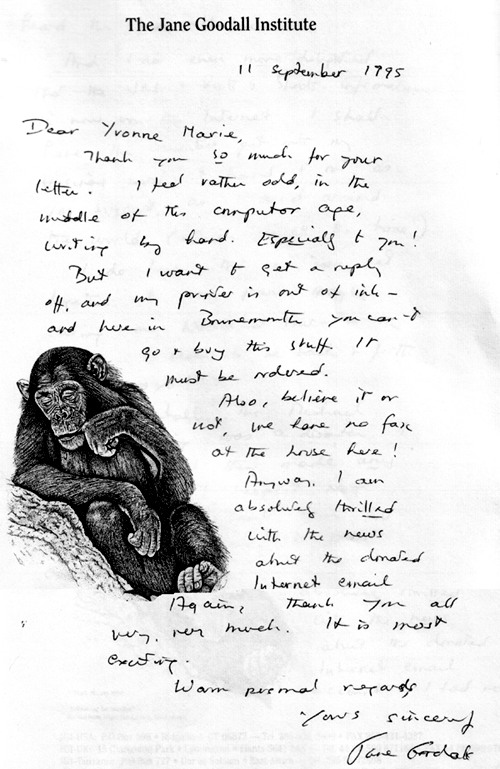 The Jane Goodall Institute
11 September 1995
Dear Yvonne Marie,
Thank you so much for your
letter. I feel rather odd, in the
middle of this computor age,
writing by hand. Especially to you!
But I want to get a reply
off, and my printer is out of ink –
and here in Bournemouth you can't
go & buy this stuff. It
must be ordered.
Also, believe it or
not, we have no fax
at the house here!
Anyway, I am
absolutely thrilled
with the news
about the donated
Internet email
Again, thank you all
very, very much. It is most
exciting.
Warm personal regards
Yours sincerely
Jane Goodall